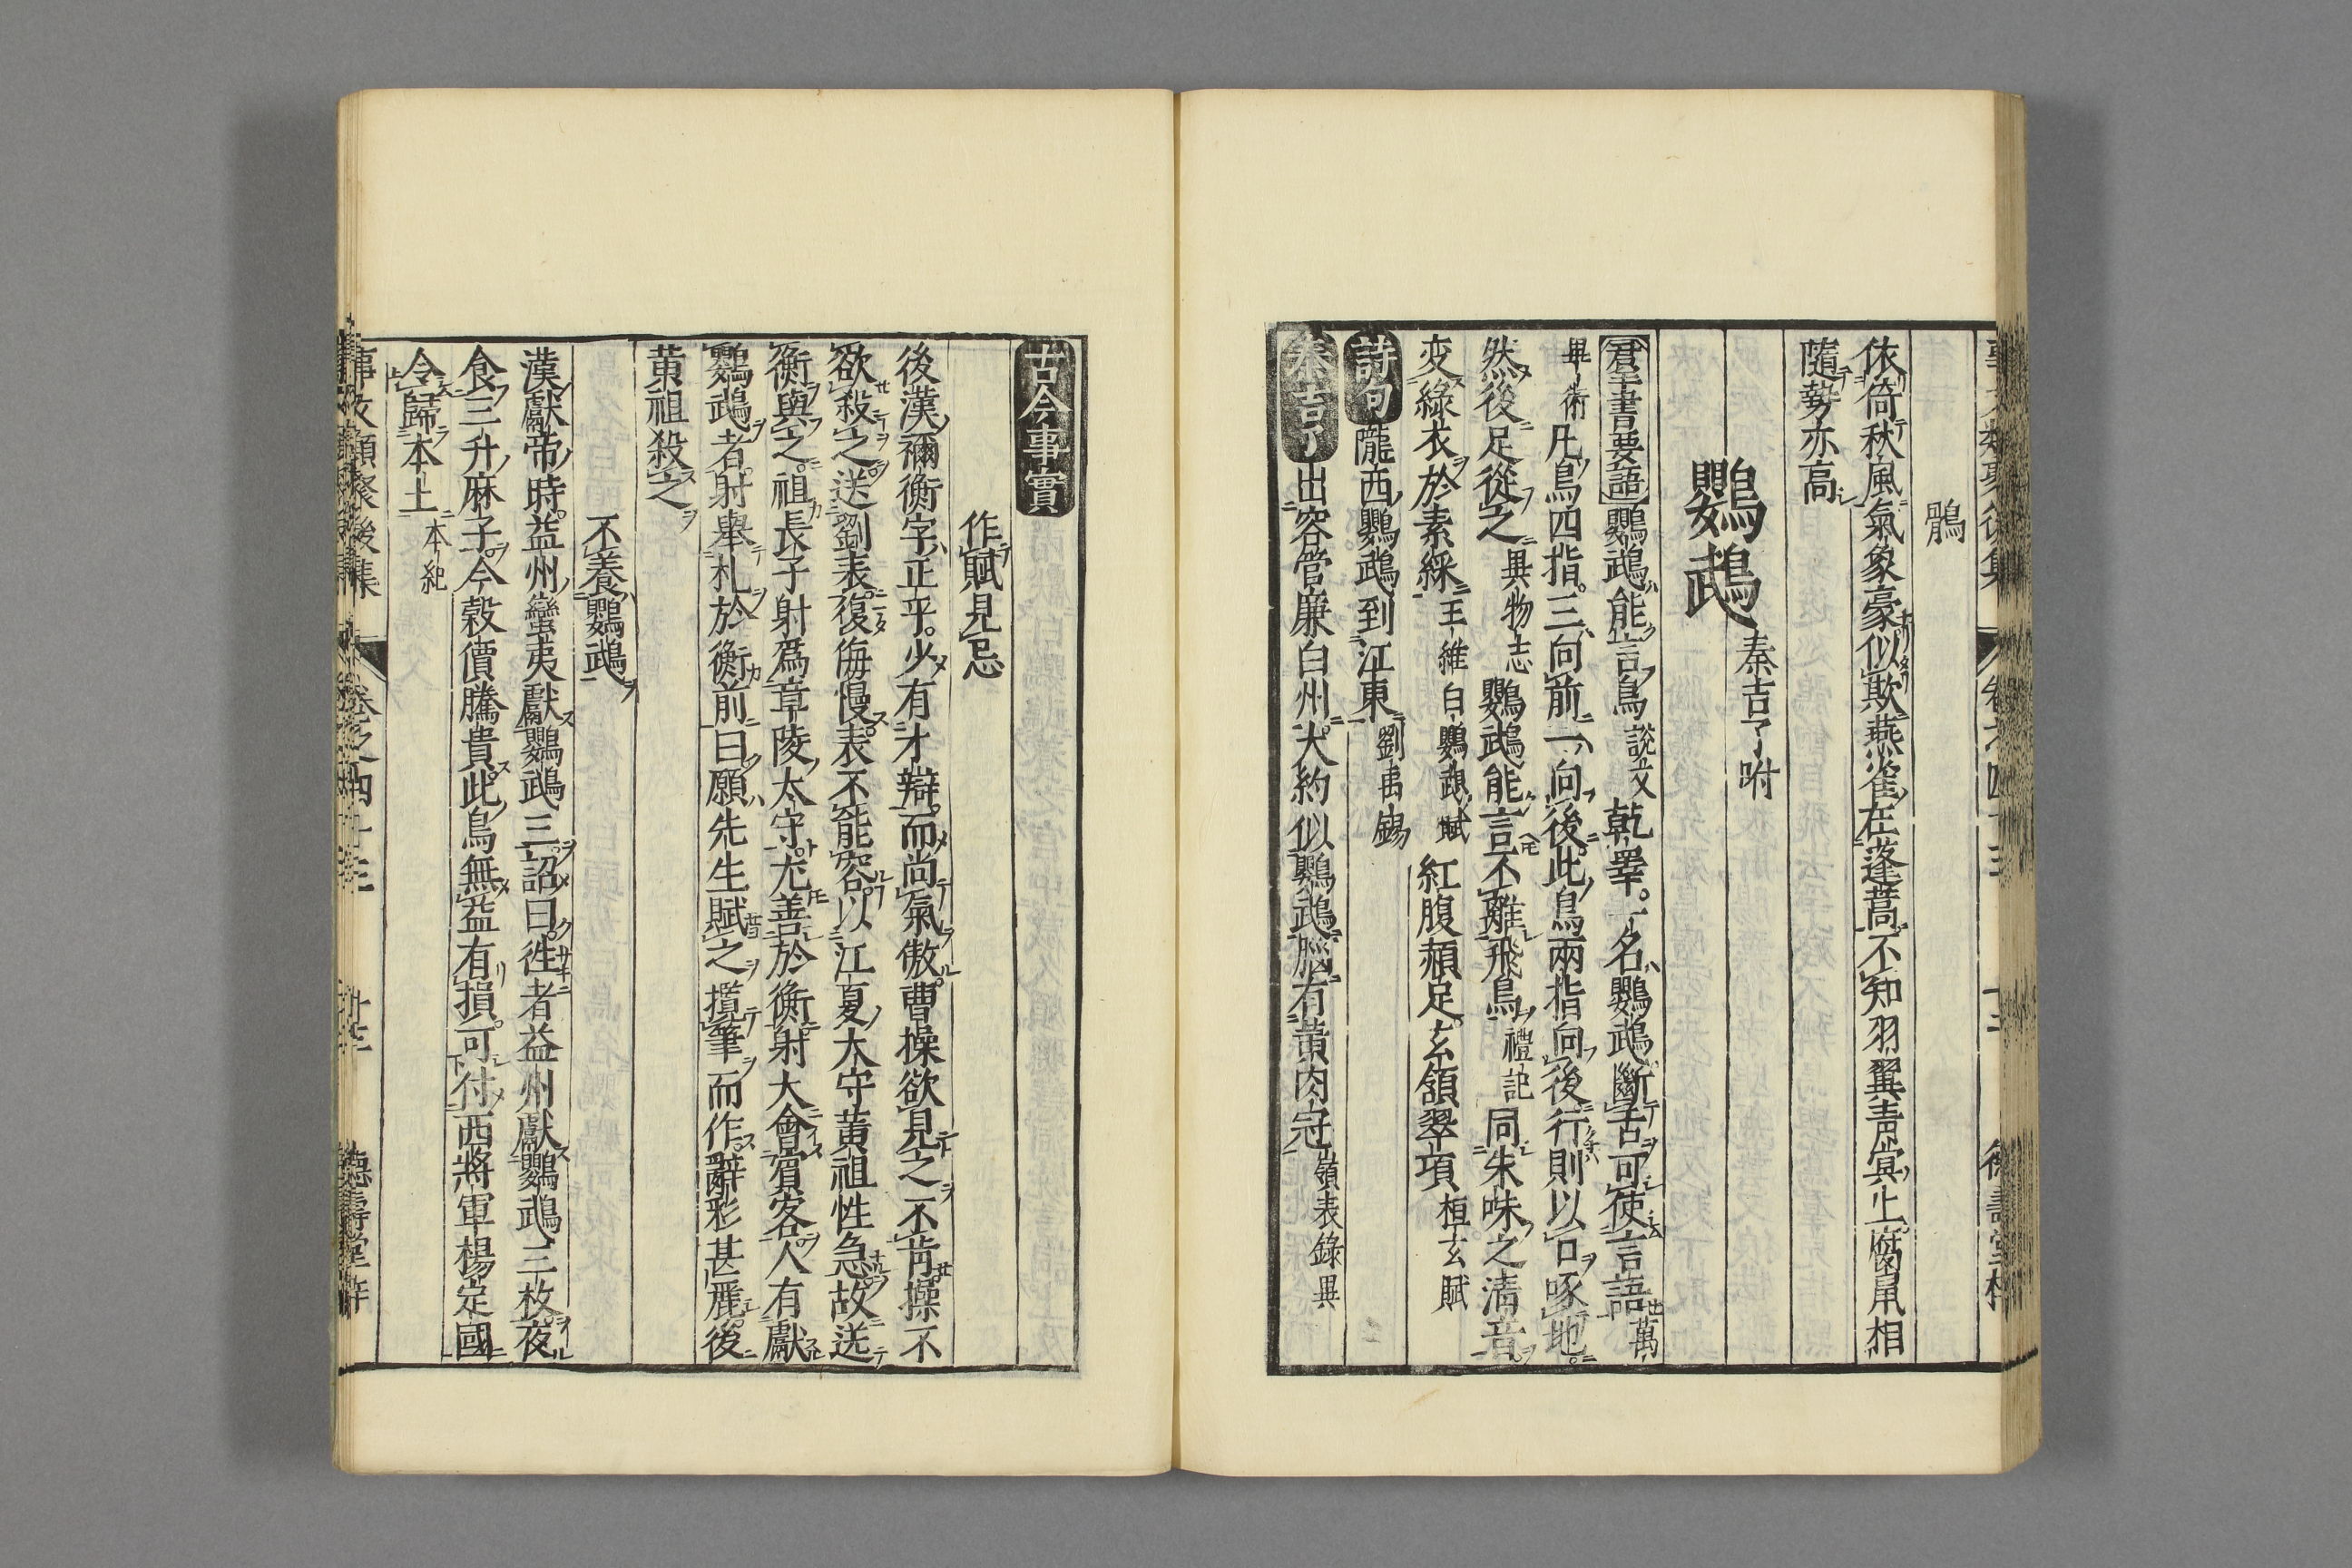 鶻
依倚秋風氣象豪似欺燕雀在蓬蒿不知羽翼青冥上腐鼠相
隨勢亦高
鸚鵡 秦吉了附
群書要語 鸚鵡能言鳥 說文 乾臯一名鸚鵡斷舌可使言語 萬
畢術 凡鳥四指三向前一向後此鳥兩指向後行則以口啄地
然後足從之 異物志 鸚鵡能言不離飛鳥 禮記 同朱味之清音
变綠衣於素綵 王維白鸚鵡賦 紅腹赬足玄頷翠項 桓玄賦
詩句 隴西鸚鵡到江東 劉禹錫
秦吉了 出容管廉白州大約似鸚鵡腦有黃肉冠 嶺表錄異
古今事實
作賦見忌
後漢禰衡字正平少有才辯而尚氣傲曹操欲見之不肯操不
欲殺之送劉表復侮慢表不能容以江夏太守黃祖性急故送
衡與之祖長子射爲章陵太守尤善於衡射大會賓客人有獻
鸚鵡者射舉札於衡前曰願先生賦之攬筆而作辭彩甚麗後
黃祖殺之
不養鸚鵡
漢獻帝時益州蠻夷獻鸚鵡三詔曰徃者益州獻鸚鵡三枚夜
食三升麻子今榖價騰貴此鳥無益有損可付西將軍楊定國
令歸本土 本紀
事文類聚後集 卷之四十三